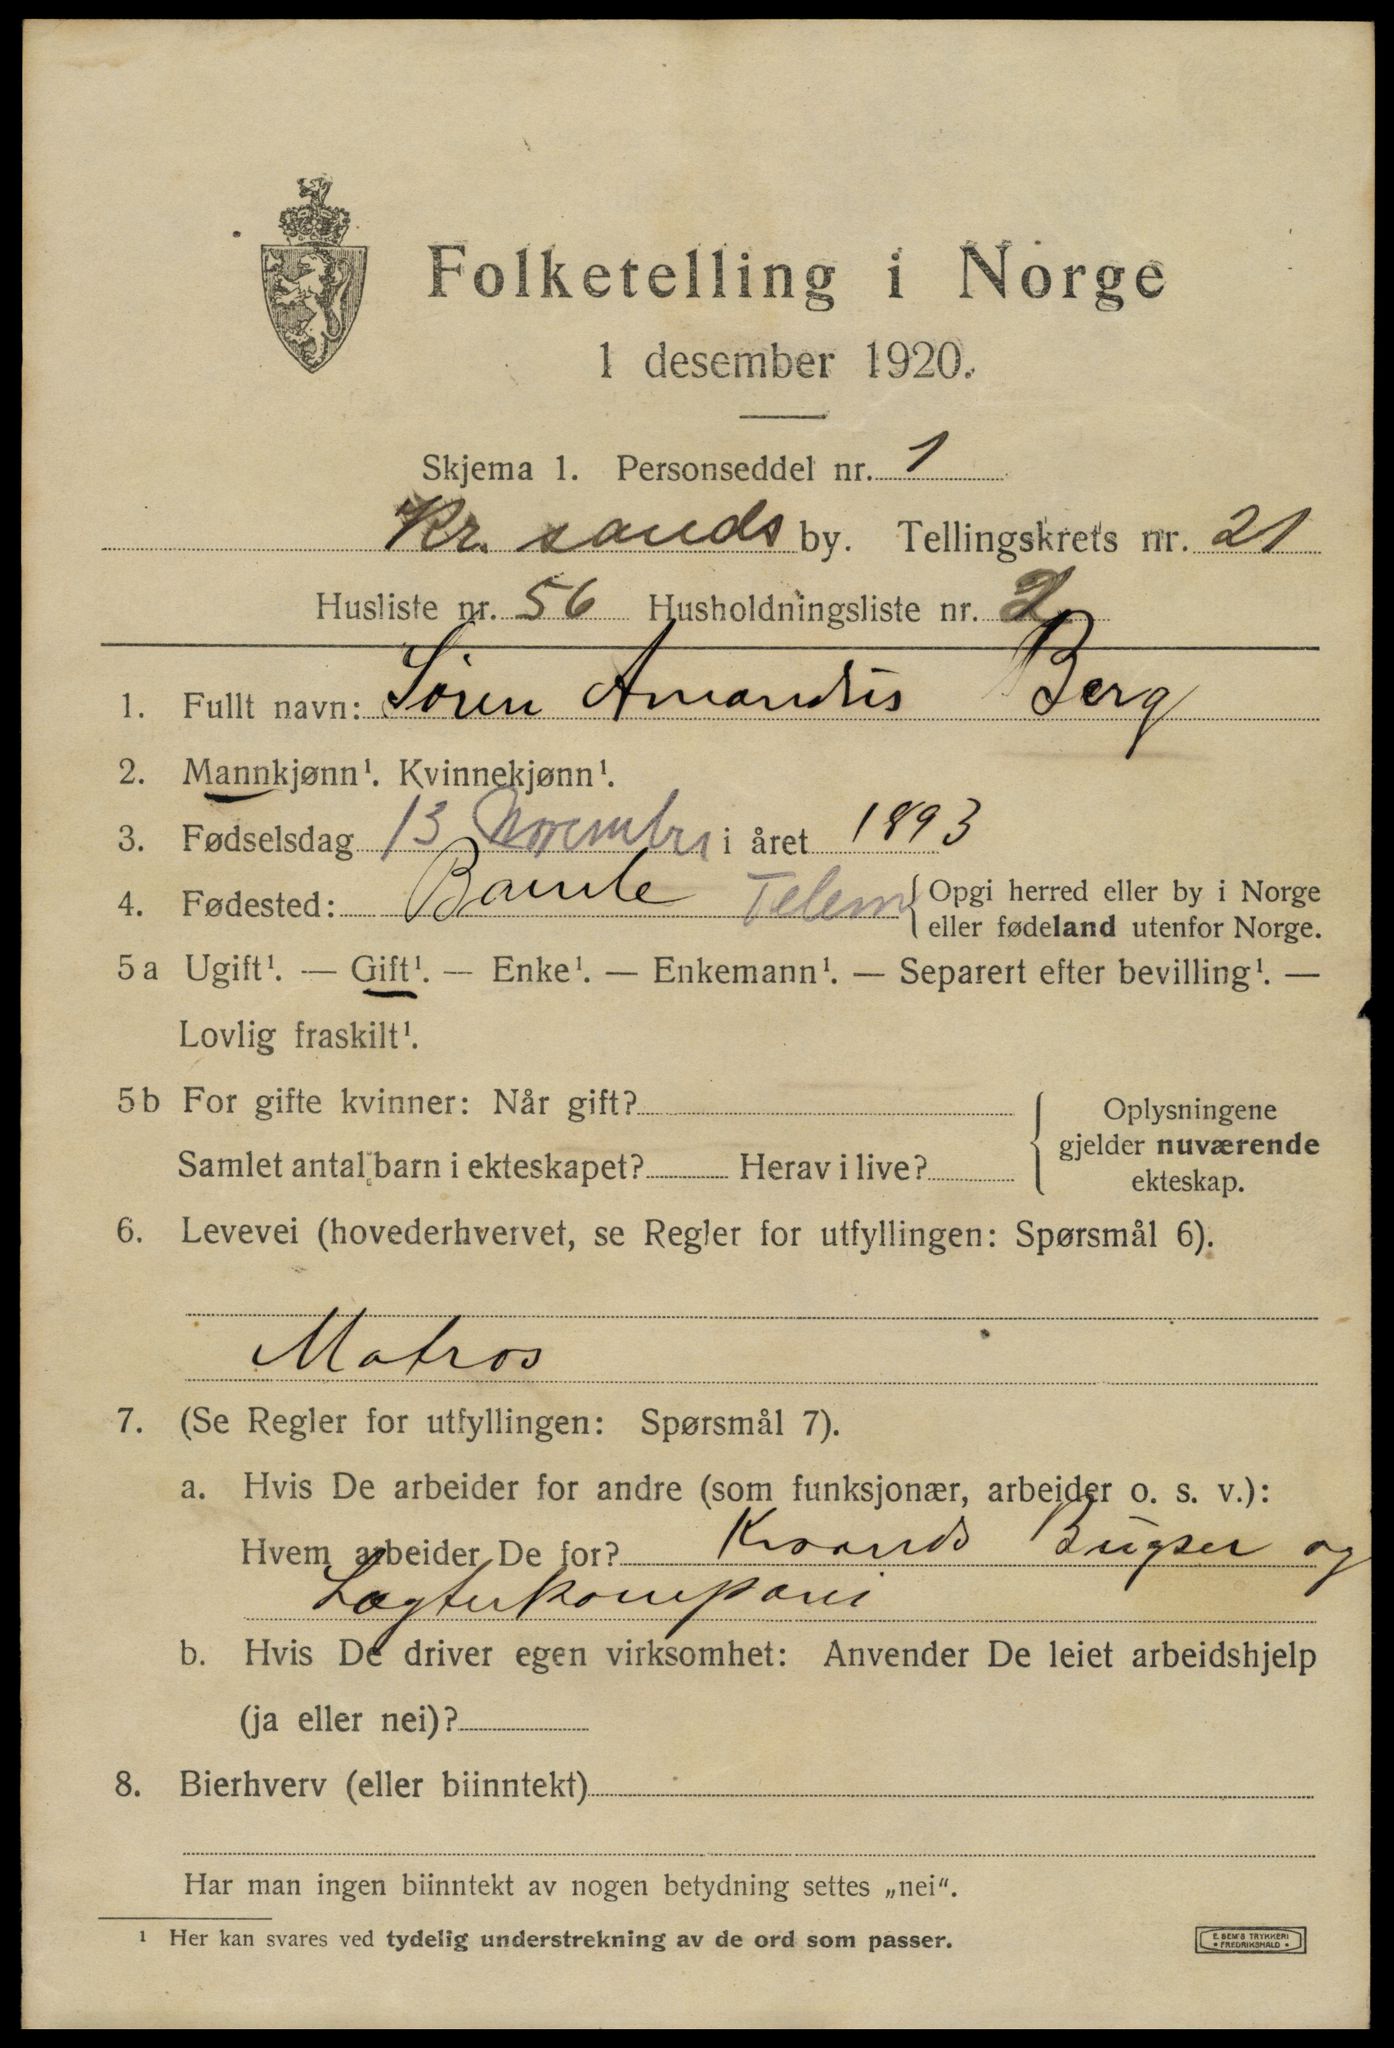 Folketelling i Norge
1 desember 1920.
Skjema 1. Personseddel nr. 1
Kr. sands by. Tellingskrets nr. 21
Husliste nr. 56 Husholdningsliste nr. 2
1. Fullt navn: Sören Amandus Berg
2. Mannkjønn¹. Kvinnekjønn¹.
3. Fødselsdag 13 November i året 1893
4. Fødested: Bamle Telem { Opgi herred eller by i Norge
eller fødeland utenfor Norge.
5a Ugift¹. — Gift¹. — Enke¹. — Enkemann¹. — Separert efter bevilling¹. —
Lovlig fraskilt¹.
5b For gifte kvinner: Når gift?
Samlet antal barn i ekteskapet? Herav i live?
Oplysningene
gjelder nuværende
ekteskap.
6. Levevei (hovederhvervet, se Regler for utfyllingen: Spørsmål 6).
Matros
7. (Se Regler for utfyllingen: Spørsmål 7).
a. Hvis De arbeider for andre (som funksjonær, arbeider o. s. v.):
Hvem arbeider De for? Krsands Bugser og
Lægterkompani
b. Hvis De driver egen virksomhet: Anvender De leiet arbeidshjelp
(ja eller nei)?
8. Bierhverv (eller biinntekt)
Har man ingen biinntekt av nogen betydning settes „nei“.
¹ Her kan svares ved tydelig understrekning av de ord som passer.
E. SEM'S TRYKKERI
• FREDRIKSHALD •